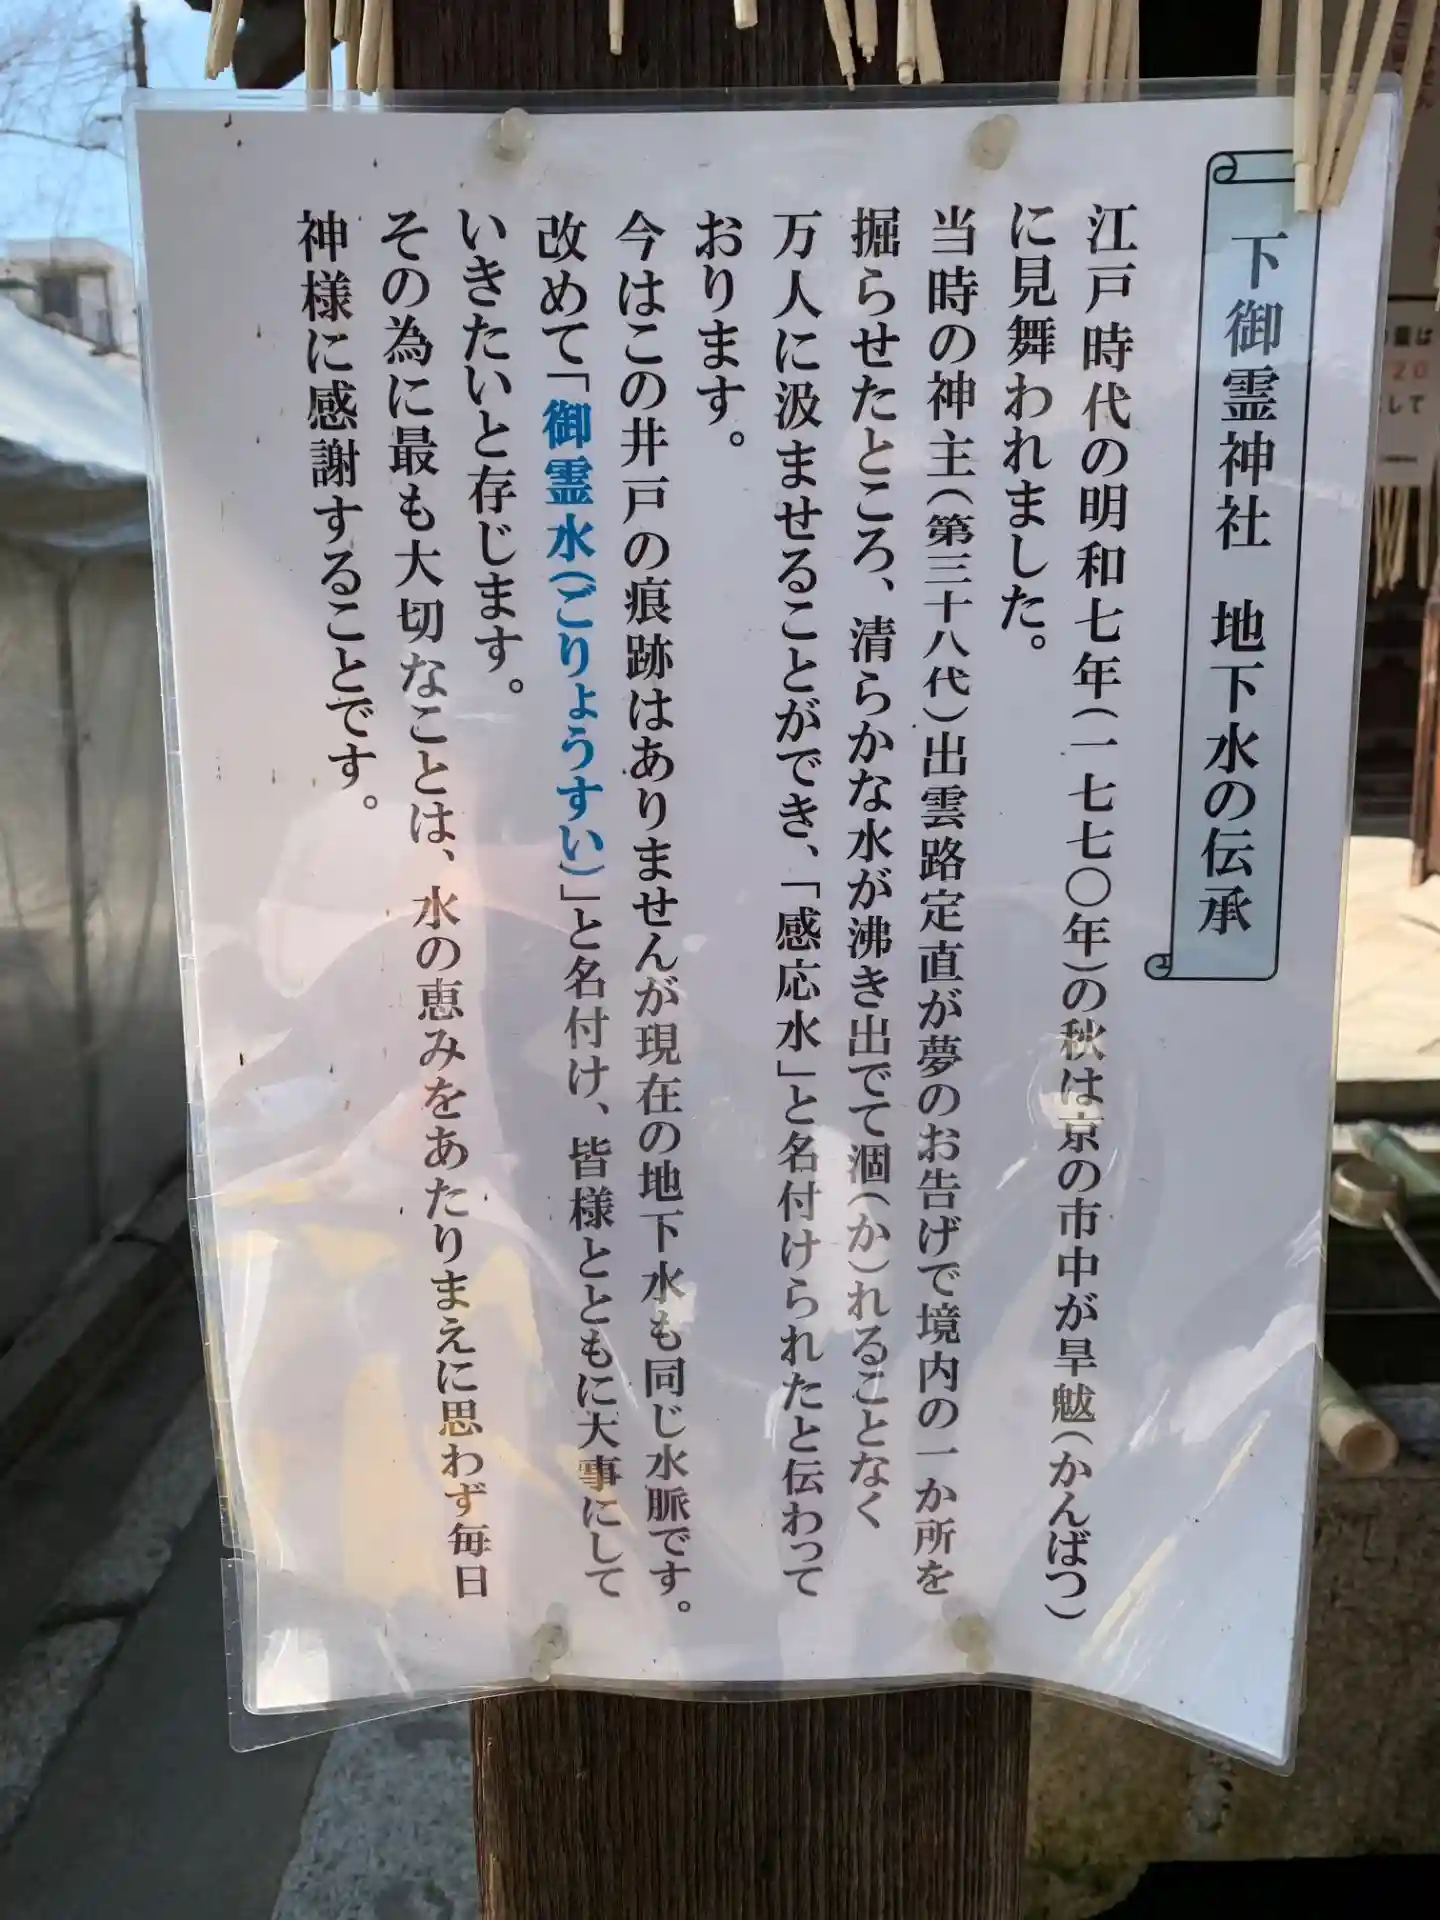 下御霊神社 地下水の伝承
江戸時代の明和七年(一七七〇年)の秋は京の市中が旱魃(かんばつ)
に見舞われました。
当時の神主(第三十八代)出雲路定直が夢のお告げで境内の一か所を
掘らせたところ、清らかな水が沸き出でて涸(か)れることなく
万人に汲ませることができ、「感応水」と名付けられたと伝わって
おります。
今はこの井戸の痕跡はありませんが現在の地下水も同じ水脈です。
改めて「御霊水(ごりょうすい)」と名付け、皆様とともに大事にして
いきたいと存じます。
その為に最も大切なことは、水の恵みをあたりまえに思わず毎日
神様に感謝することです。